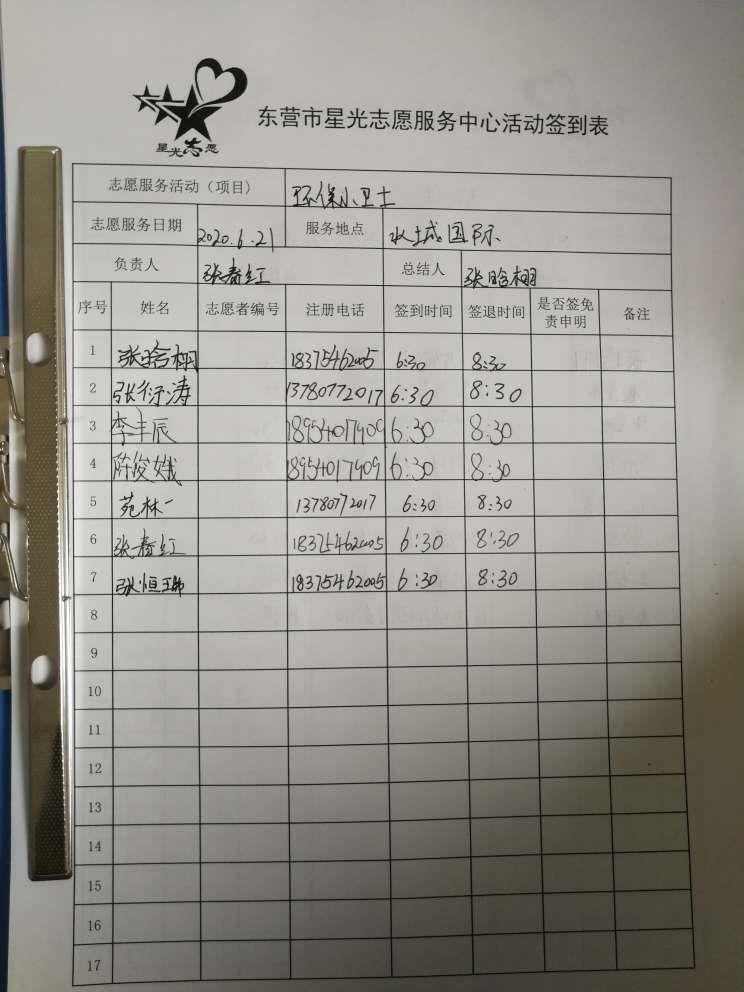 星光志愿
东营市星光志愿服务中心活动签到表
志愿服务活动（项目） 环保小卫士
志愿服务日期 2020.6.21 服务地点 水城国际
负责人 张春红 总结人 张晗栩
序号 姓名 志愿者编号 注册电话 签到时间 签退时间 是否签免责申明 备注
1 张晗栩 18375462005 6:30 8:30
2 张衍涛 13780772017 6:30 8:30
3 李丰辰 18954017909 6:30 8:30
4 陈俊娥 18954017909 6:30 8:30
5 苑林一 13780772017 6:30 8:30
6 张春红 18375462005 6:30 8:30
7 张恒 18375462005 6:30 8:30
8
9
10
11
12
13
14
15
16
17